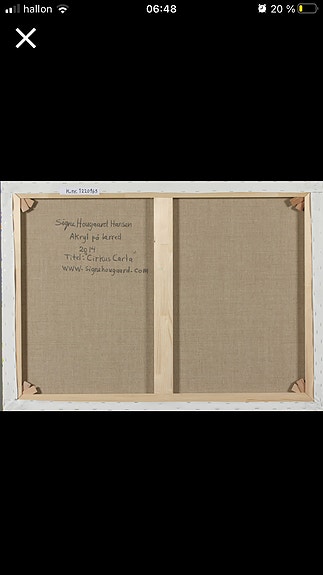 hallon
06:48
20 %
K.nr. 1220163
Signe Hougaard Hansen
Akryl på lærred
2014
Titel: "Cirkus Carla"
www.signehougaard.com